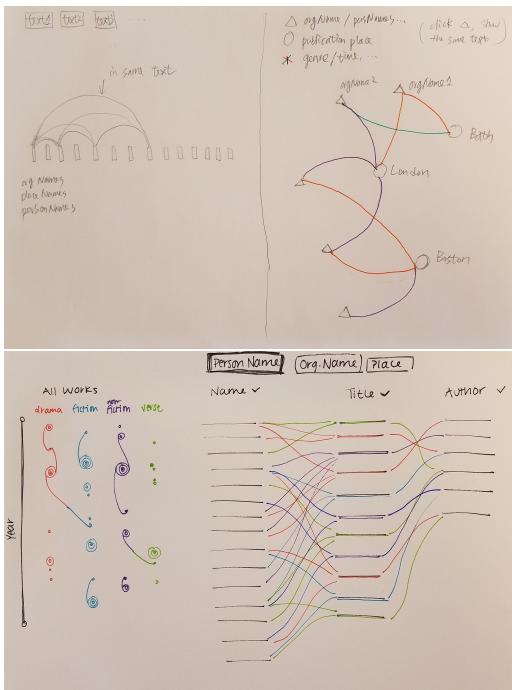 text1 text2 text3 ....
in same text
orgNames
placeNames
personNames
△ orgName / persNames...
○ publication place
* genre/time, ...
(click △, show the same text)
orgName2
orgName1
Bath
London
Boston
Person Name Org.Name Place
All Works
drama fiction non fiction verse
year
Name ✓ Title ✓ Author ✓